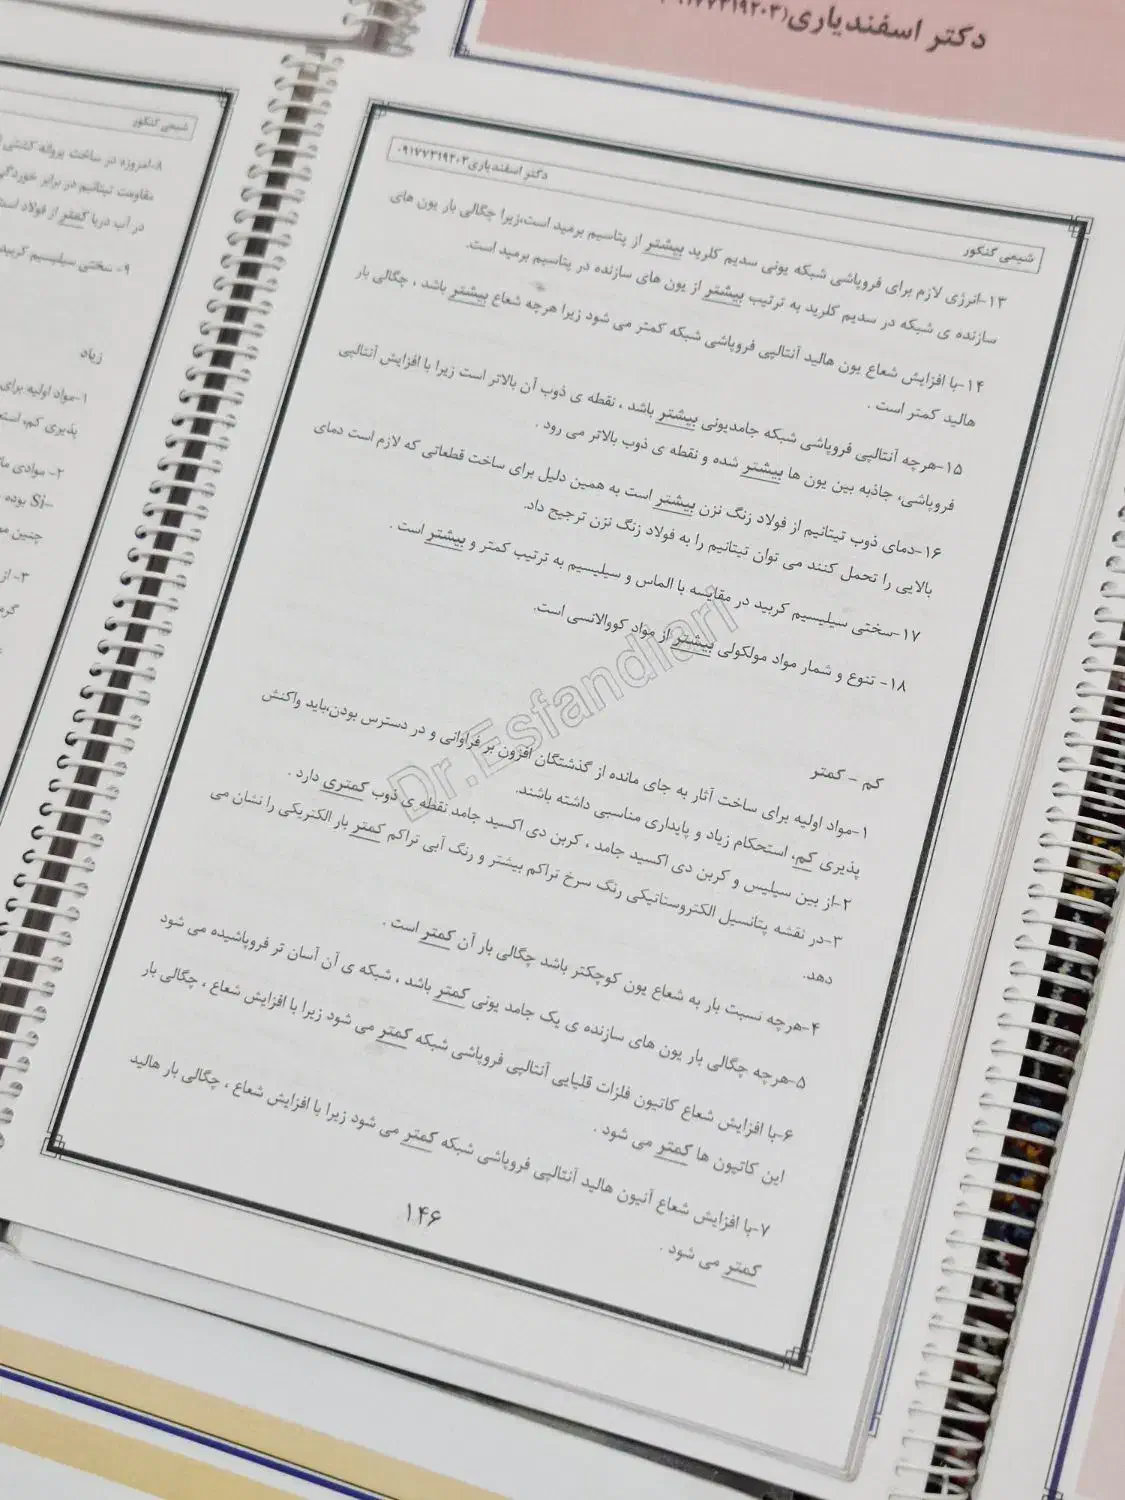 دکتر اسفندیاری(
شیمی کنکور
۸-امروزه در ساخت پروانه کشتی
مقاومت تیتانیم در برابر خوردگی
در آب دریا کمتر از فولاد است
۹- سختی سیلیسیم کربید
زیاد
۱-مواد اولیه برای
پذیری کم، استح
۲- موادی ما
Si- بوده
چنین مو
۳- از
گرم
شیمی کنکور
دکتر اسفندیاری۰۹۱۷۷۳۱۹۲۰۳
۱۳-انرژی لازم برای فروپاشی شبکه یونی سدیم کلرید بیشتر از پتاسیم برمید است،زیرا چگالی بار یون های
سازنده ی شبکه در سدیم کلرید به ترتیب بیشتر از یون های سازنده در پتاسیم برمید است.
۱۴-با افزایش شعاع یون هالید آنتالپی فروپاشی شبکه کمتر می شود زیرا هرچه شعاع بیشتر باشد ، چگالی بار
هالید کمتر است .
۱۵-هرچه آنتالپی فروپاشی شبکه جامدیونی بیشتر باشد ، نقطه ی ذوب آن بالاتر است زیرا با افزایش آنتالپی
فروپاشی، جاذبه بین یون ها بیشتر شده و نقطه ی ذوب بالاتر می رود .
۱۶-دمای ذوب تیتانیم از فولاد زنگ نزن بیشتر است به همین دلیل برای ساخت قطعاتی که لازم است دمای
بالایی را تحمل کنند می توان تیتانیم را به فولاد زنگ نزن ترجیح داد.
۱۷-سختی سیلیسیم کربید در مقایسه با الماس و سیلیسیم به ترتیب کمتر و بیشتر است .
۱۸- تنوع و شمار مواد مولکولی بیشتر از مواد کووالانسی است.
کم - کمتر
۱-مواد اولیه برای ساخت آثار به جای مانده از گذشتگان افزون بر فراوانی و در دسترس بودن،باید واکنش
پذیری کم، استحکام زیاد و پایداری مناسبی داشته باشند.
۲-از بین سیلیس و کربن دی اکسید جامد ، کربن دی اکسید جامد نقطه ی ذوب کمتری دارد .
۳-در نقشه پتانسیل الکتروستاتیکی رنگ سرخ تراکم بیشتر و رنگ آبی تراکم کمتر بار الکتریکی را نشان می
دهد.
۴-هرچه نسبت بار به شعاع یون کوچکتر باشد چگالی بار آن کمتر است .
۵-هرچه چگالی بار یون های سازنده ی یک جامد یونی کمتر باشد ، شبکه ی آن آسان تر فروپاشیده می شود
۶-با افزایش شعاع کاتیون فلزات قلیایی آنتالپی فروپاشی شبکه کمتر می شود زیرا با افزایش شعاع ، چگالی بار
این کاتیون ها کمتر می شود .
۷-با افزایش شعاع آنیون هالید آنتالپی فروپاشی شبکه کمتر می شود زیرا با افزایش شعاع ، چگالی بار هالید
کمتر می شود .
۱۴۶
Dr.Esfandiari